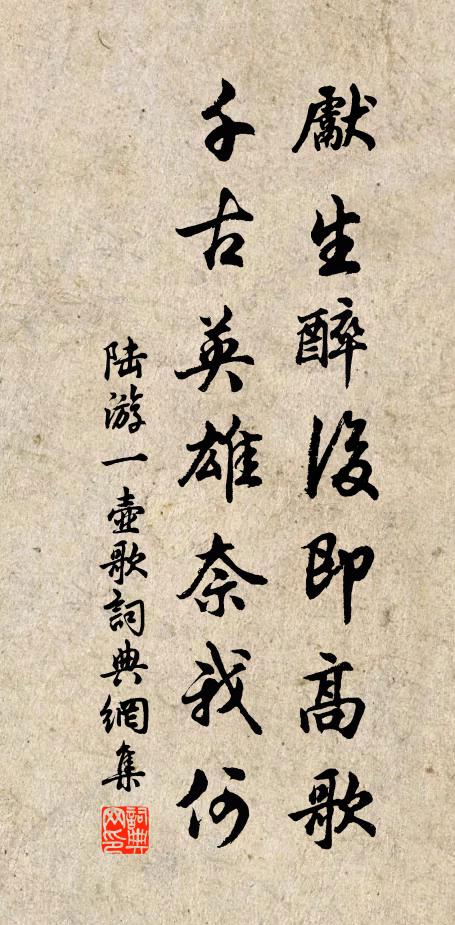 獻生醉後即高歌
千古英雄奈我何
陸游一壺歌詞典網集
詞典网印